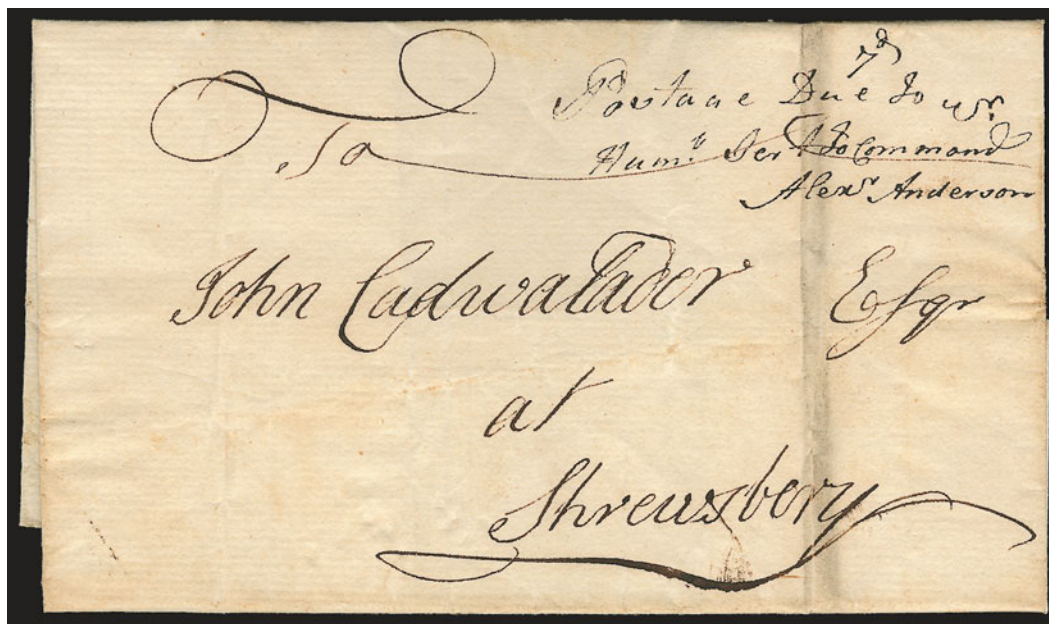 7d
Postage Due To yr
Humle Servt To Command
Alexr Anderson
To
John Cadwalader Esqr
at
Shrewsbery